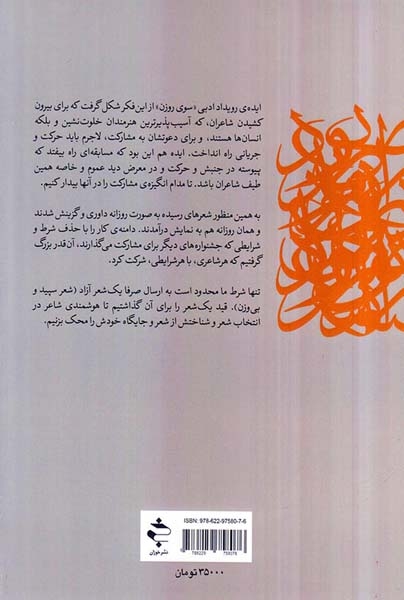 ایده‌ی رویداد ادبی «سوی روزن» از این فکر شکل گرفت که برای بیرون
کشیدن شاعران، که آسیب‌پذیرترین هنرمندان خلوت‌نشین و بلکه
انسان‌ها هستند، و برای دعوتشان به مشارکت، لاجرم باید حرکت و
جریانی راه انداخت. ایده هم این بود که مسابقه‌ای راه بیفتد که
پیوسته در جنبش و حرکت و در معرض دید عموم و خاصه همین
طیف شاعران باشد. تا مدام انگیزه‌ی مشارکت را در آنها بیدار کنیم.
به همین منظور شعرهای رسیده به صورت روزانه داوری و گزینش شدند
و همان روزانه هم به نمایش درآمدند. دامنه‌ی کار را با حذف شرط و
شرایطی که جشنواره‌های دیگر برای مشارکت می‌گذارند، آن‌قدر بزرگ
گرفتیم که هر شاعری، با هر شرایطی، شرکت کرد.
تنها شرط ما محدود است به ارسال صرفا یک شعر آزاد (شعر سپید و
بی‌وزن). قید یک شعر را برای آن گذاشتیم تا هوشمندی شاعر در
انتخاب شعر و شناختش از شعر و جایگاه خودش را محک بزنیم.
ISBN: 978-622-97580-7-6
نشر خوزان
۳۵۰۰۰ تومان